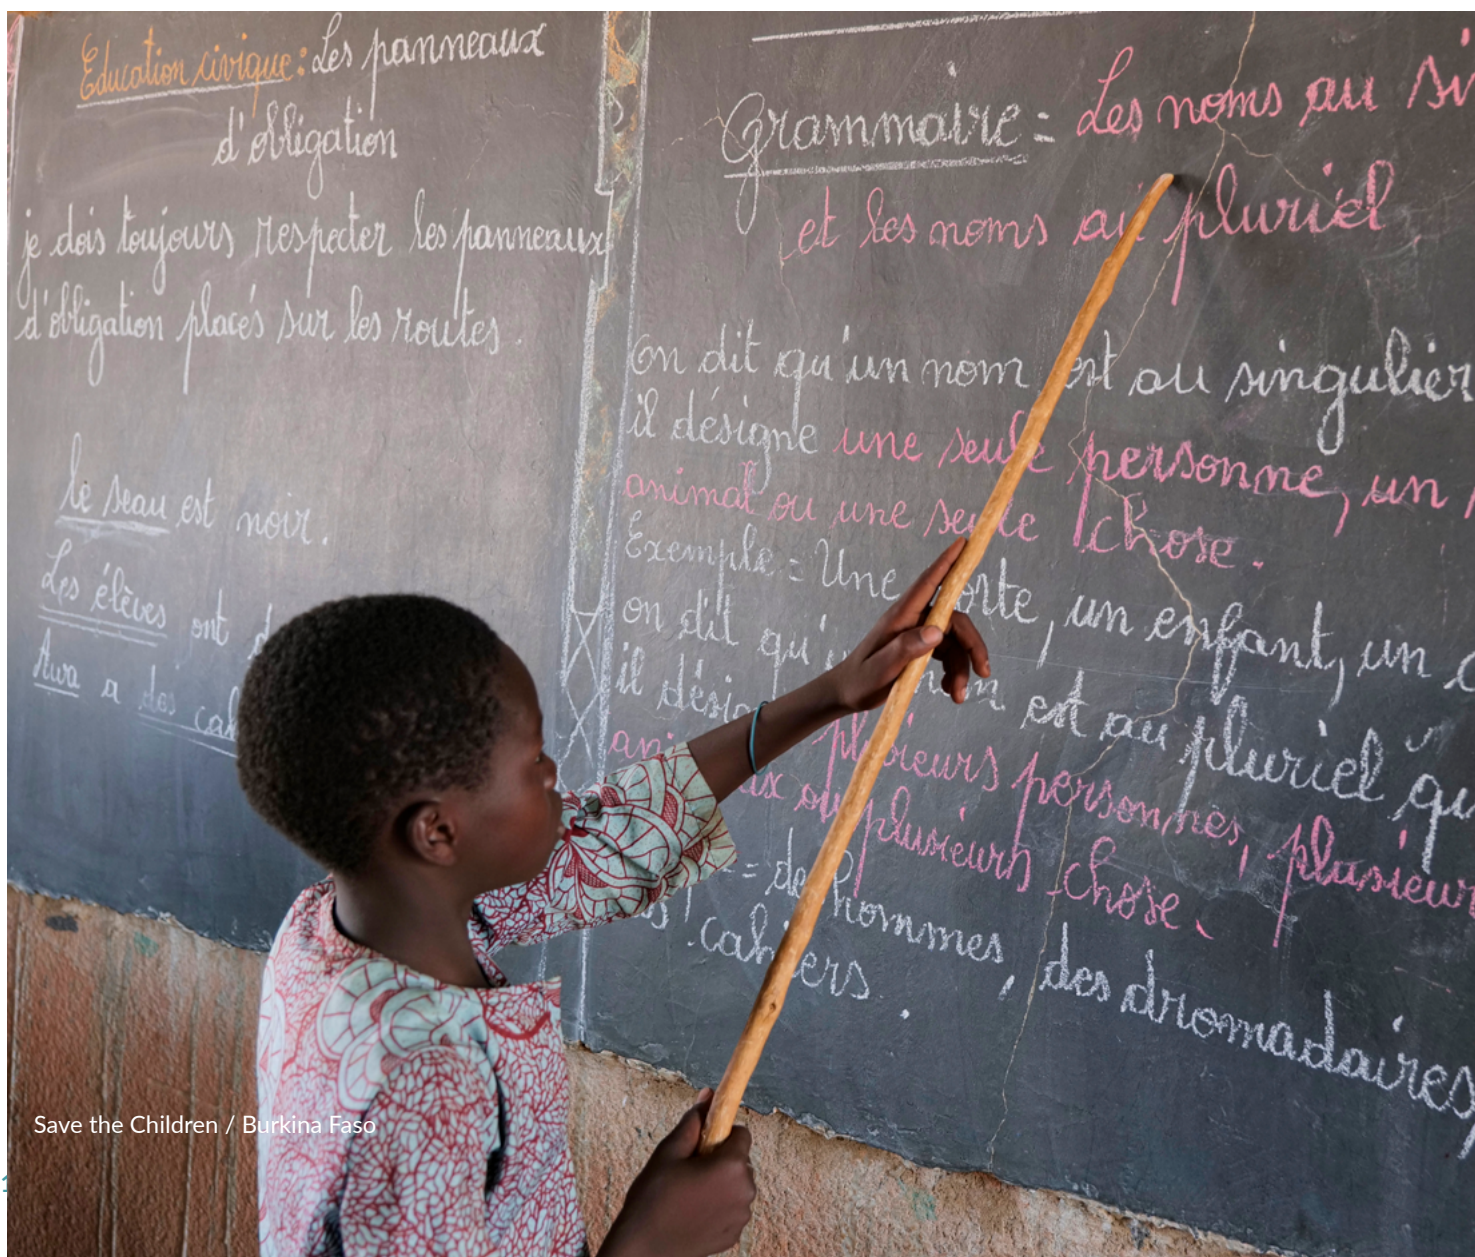 Education civique: Les panneaux
d'obligation
je dois toujours respecter les panneaux
d'obligation placés sur les routes.
le seau est noir.
Les élèves ont
Awa a des
Grammaire = Les noms au
et les noms au pluriel
On dit qu'un nom est au singulier
il désigne une seule personne, un
animal ou une seule chose.
Exemple = Une porte, un enfant, un
on dit qu'un nom est au pluriel
il désigne plusieurs personnes, plusieurs
ou plusieurs chose.
= des hommes, des dromadaires,
cahiers.
Save the Children / Burkina Faso